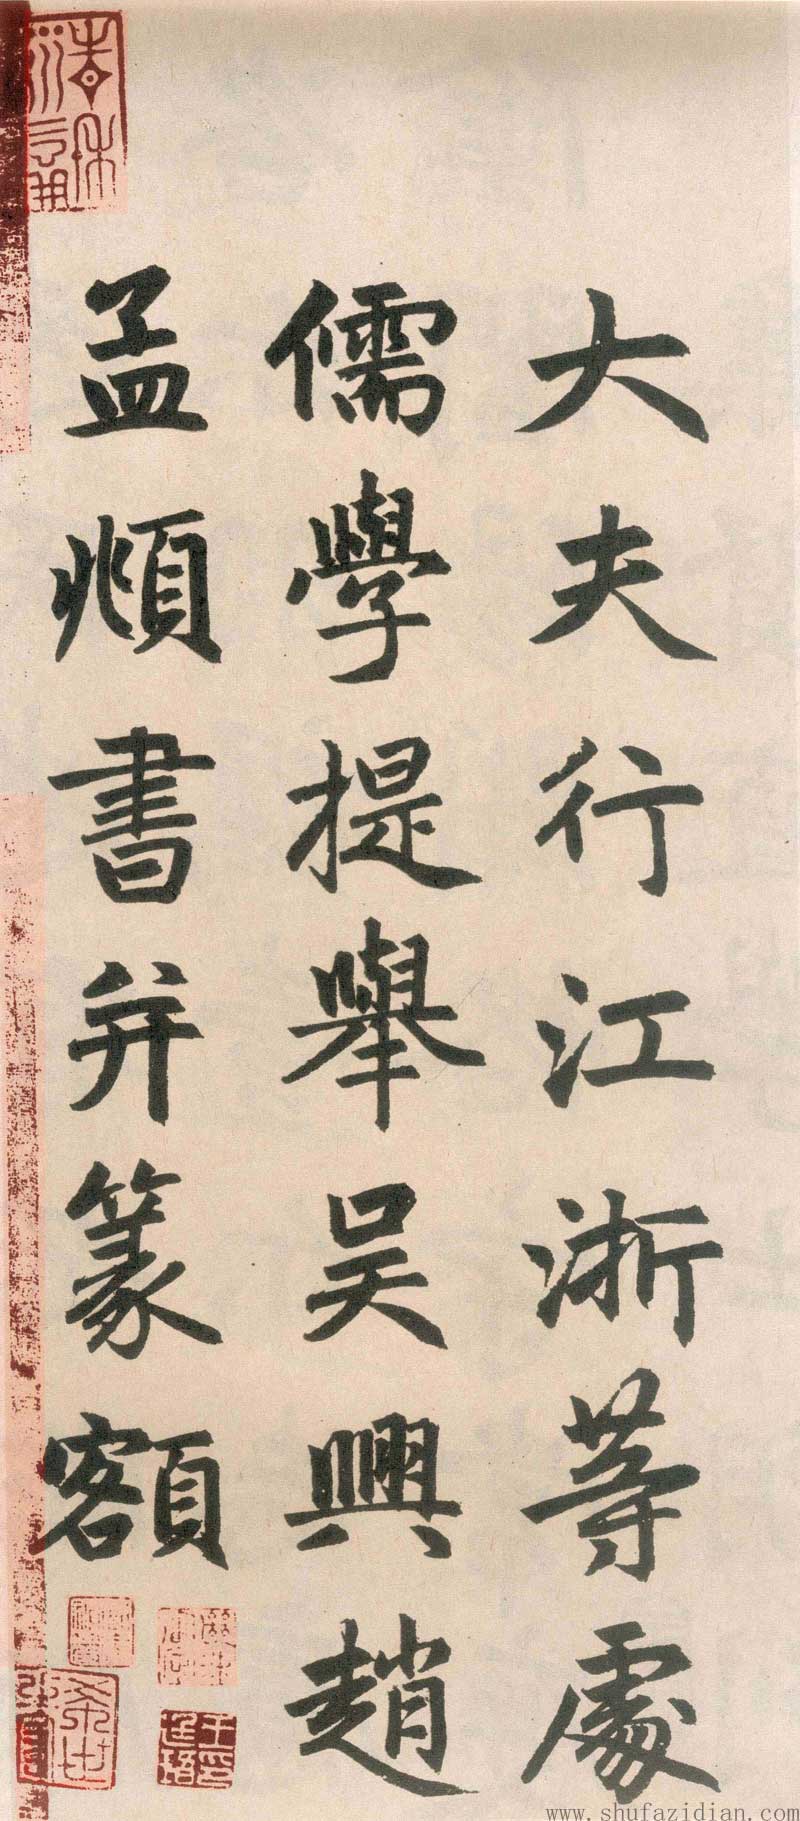 大夫行江浙等處
儒學提舉吴興趙
孟頫書并篆額
www.shufazidian.com